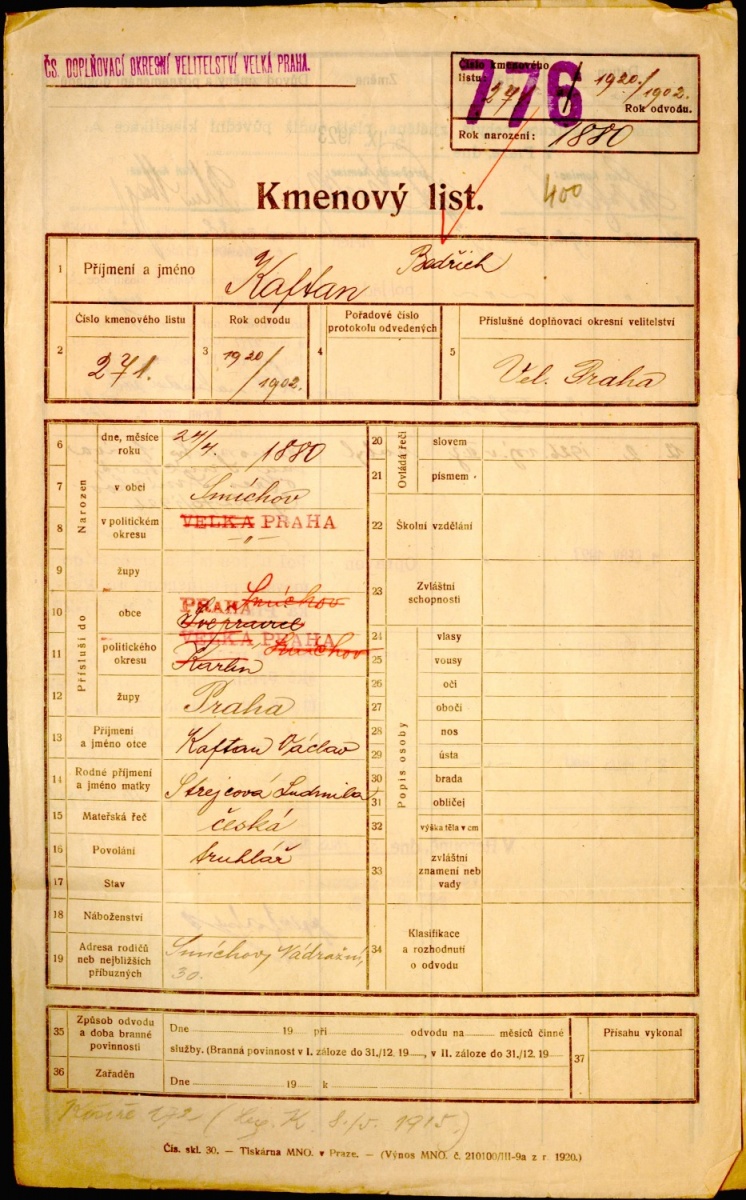 ČS. DOPLŇOVACÍ OKRESNÍ VELITELSTVÍ VELKÁ PRAHA.
Číslo kmenového listu: 271 a 1920/1902.
776
Rok odvodu.
Rok narození: 1880
Kmenový list.
400
1 Příjmení a jméno Kaftan Bedřich
Číslo kmenového listu
Rok odvodu
Pořadové číslo protokolu odvedených
Příslušné doplňovací okresní velitelství
2 271. 3 1920/1902. 4 5 Vel. Praha
Narozen
6 dne, měsíce roku 24/4. 1880
7 v obci Smíchov
8 v politickém okresu VELKÁ PRAHA
-"-
9 župy
Přísluší do
10 obce PRAHA Smíchov
11 politického okresu VELKÁ PRAHA Smíchov
Karlín
12 župy Praha
13 Příjmení a jméno otce Kaftan Václav
14 Rodné příjmení a jméno matky Strejcová Ludmila
15 Mateřská řeč česká
16 Povolání truhlář
17 Stav
18 Náboženství
19 Adresa rodičů neb nejbližších příbuzných Smíchov, Nádražní, 30.
Ovládá řeči
20 slovem
21 písmem
22 Školní vzdělání
23 Zvláštní schopnosti
Popis osoby
24 vlasy
25 vousy
26 oči
27 obočí
28 nos
29 ústa
30 brada
31 obličej
32 výška těla v cm
33 zvláštní znamení neb vady
34 Klasifikace a rozhodnutí o odvodu
35 Způsob odvodu a doba branné povinnosti
Dne 19 při odvodu na měsíců činné
služby. (Branná povinnost v I. záloze do 31./12. 19 , v II. záloze do 31./12. 19
36 Zařaděn
Dne 19 k
37 Přísahu vykonal
Košíře 192 (leg. K. 8./5. 1915.)
Čís. skl. 30. — Tiskárna MNO. v Praze. — (Výnos MNO. č. 210100/III-9a z r. 1920.)